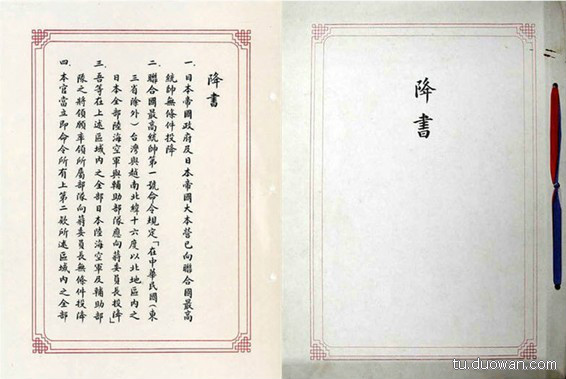 降書
一.日本帝國政府及日本帝國大本營已向聯合國最高
統帥無條件投降
二.聯合國最高統帥第一號命令規定「在中華民國(東
三省除外)台灣與越南北緯十六度以北地區內之
日本全部陸海空軍與輔助部隊應向蔣委員長投降」
三.吾等在上述區域內之全部日本陸海空軍及輔助部
隊之將領願率領所屬部隊向蔣委員長無條件投降
四.本官當立即命令所有上第二款所述區域內之全部
降書
tu.duowan.com